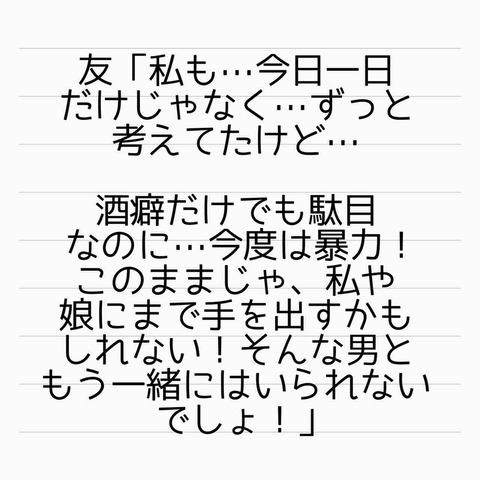 友「私も…今日一日
だけじゃなく…ずっと
考えてたけど…
酒癖だけでも駄目
なのに…今度は暴力！
このままじゃ、私や
娘にまで手を出すかも
しれない！そんな男と
もう一緒にはいられない
でしょ！」